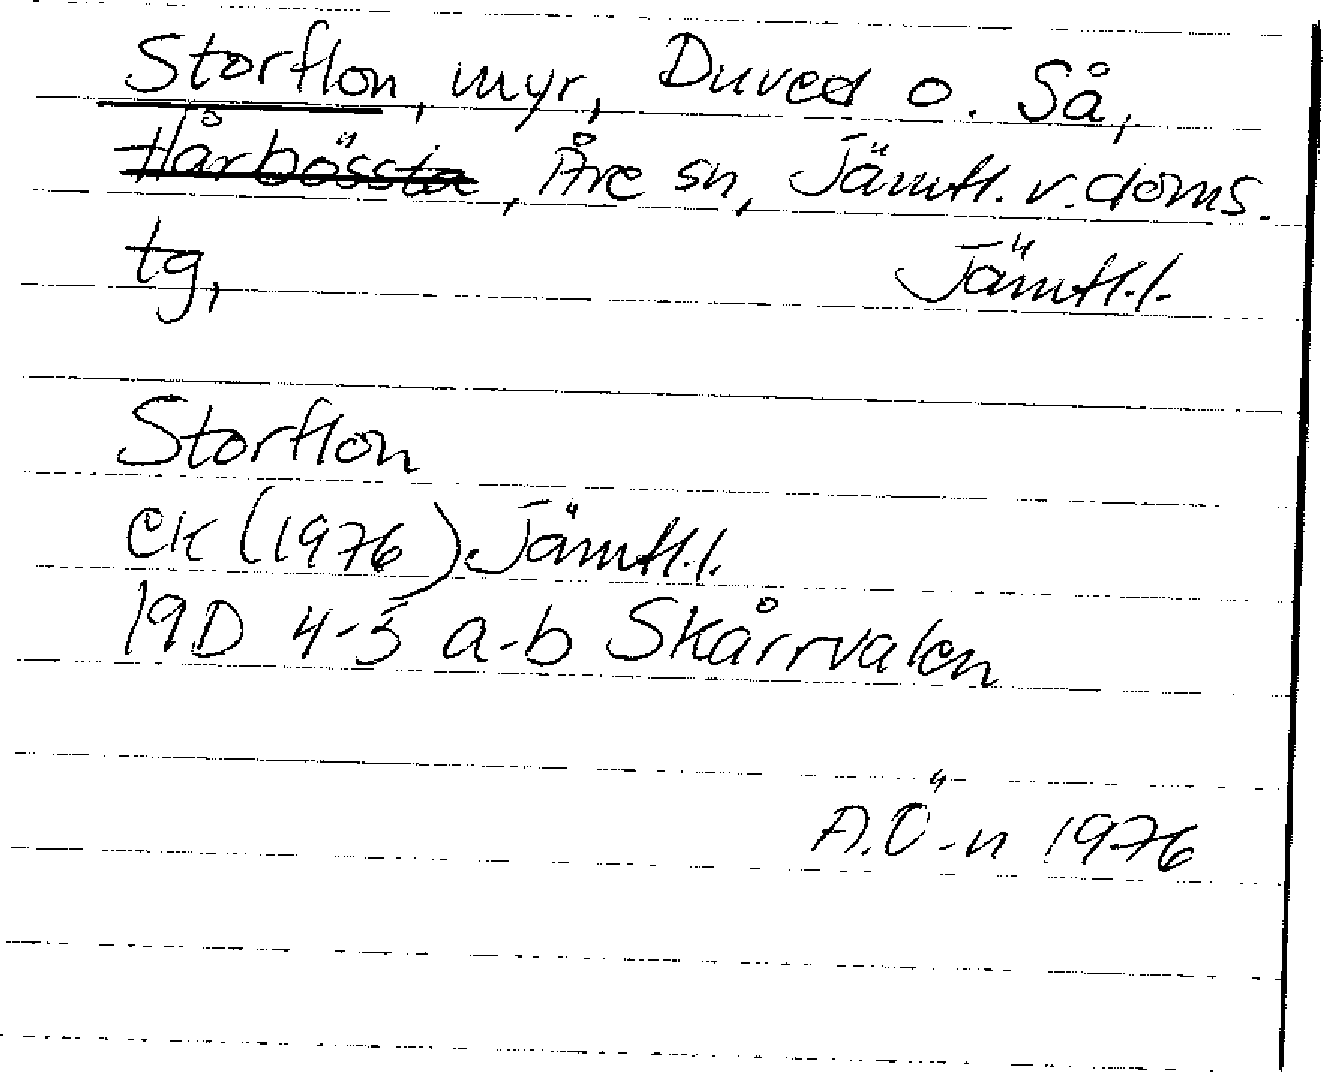 Storflon, myr, Duved o. Så,
Hårbössta, Åre sn, Jämtl. v. doms.
tg, Jämtl.l.
Storflon
EK (1976). Jämtl.l.
19D 4-5 a-b Skårrvalen
A.Ö-n 1976